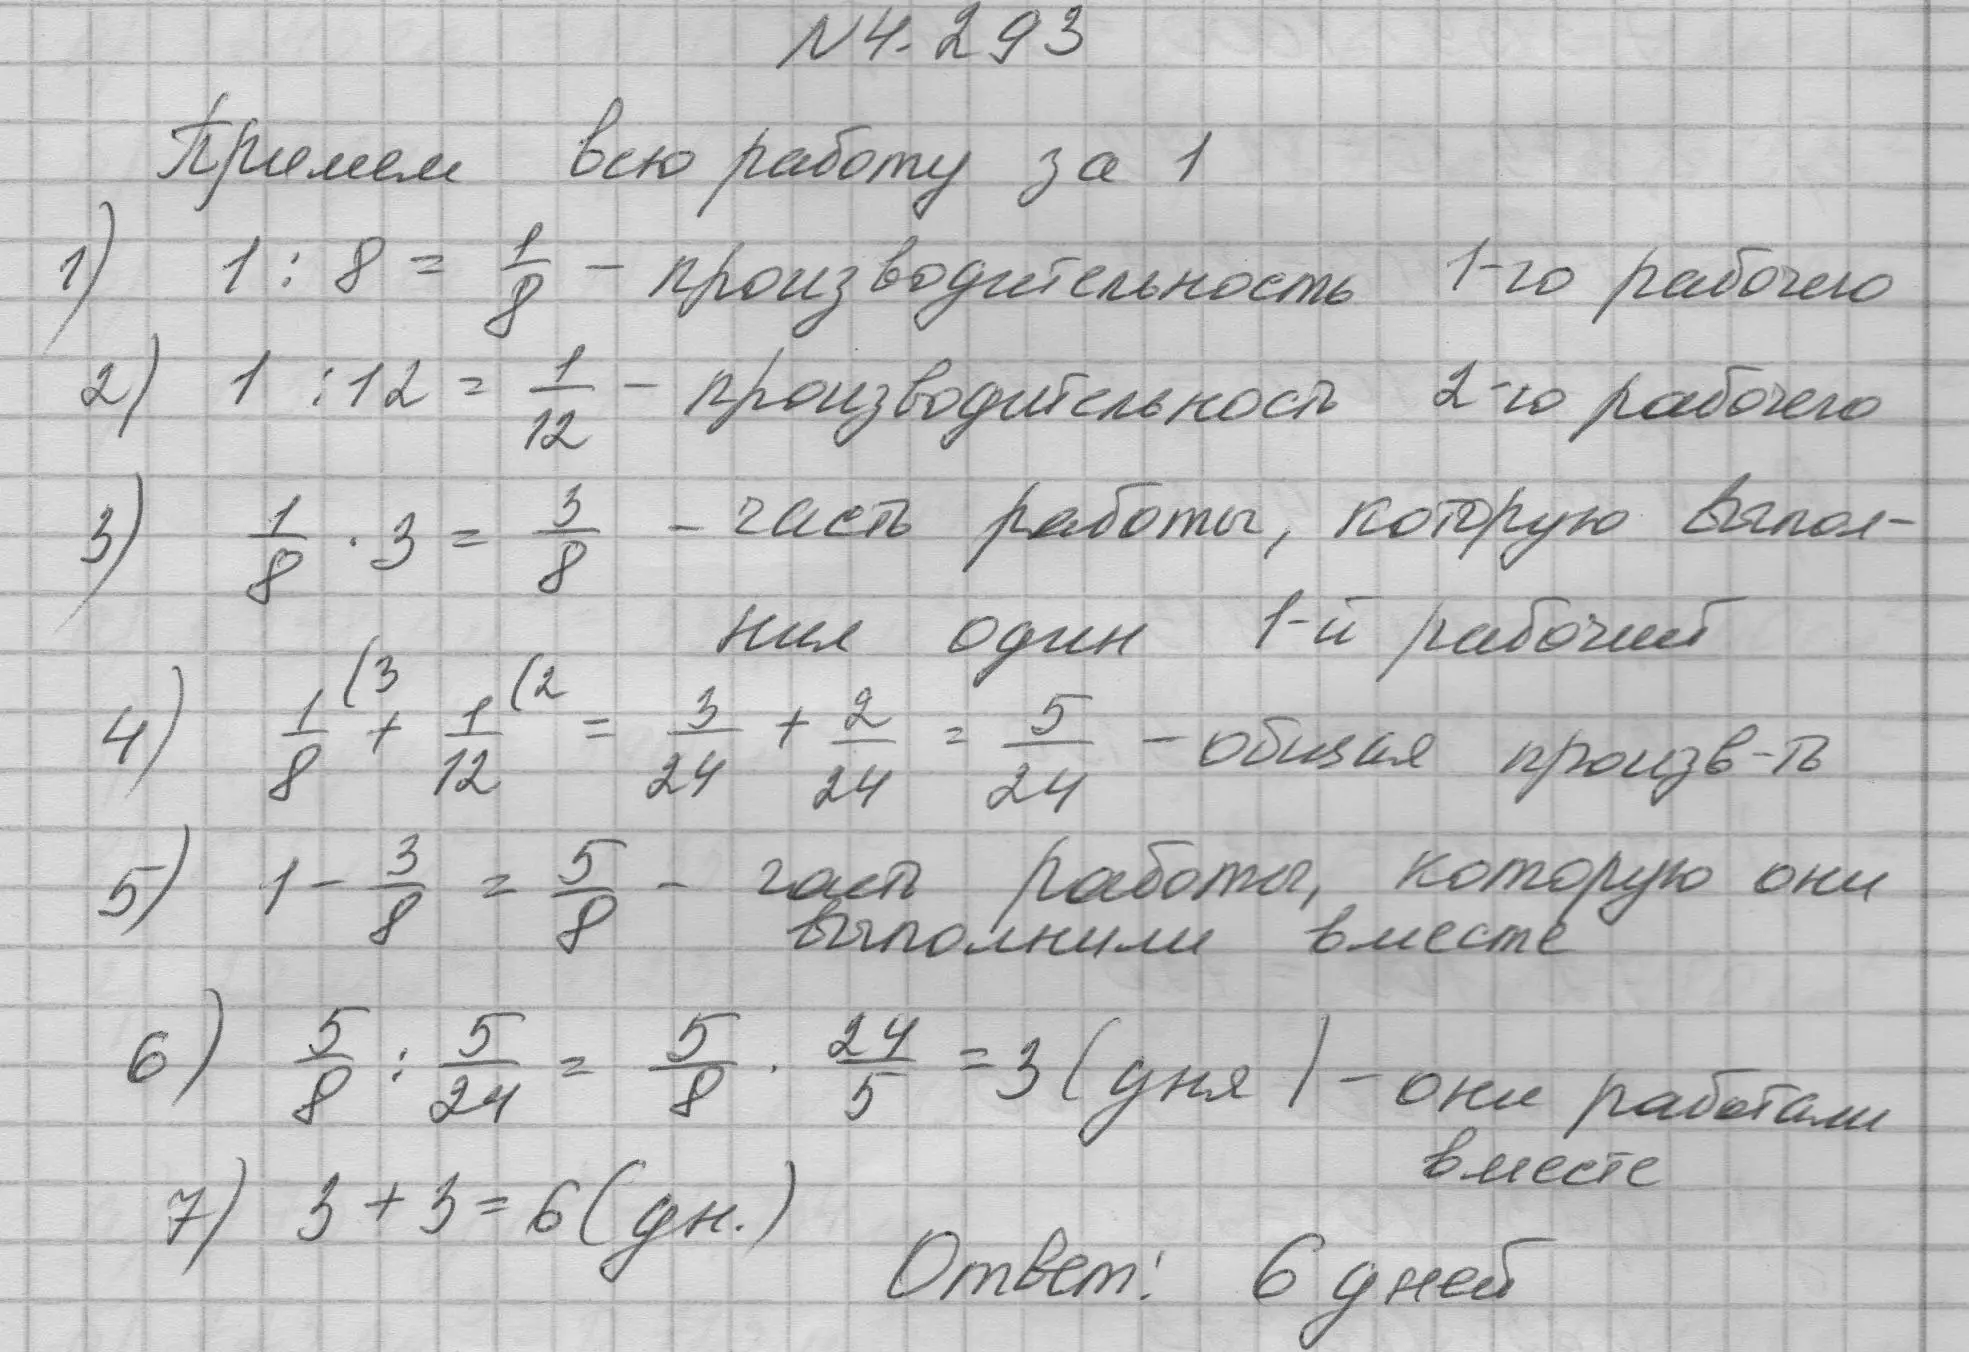 №4.293
Примем всю работу за 1
1) 1 : 8 = 1/8 – производительность 1-го рабочего
2) 1 : 12 = 1/12 – производительность 2-го рабочего
3) 1/8 · 3 = 3/8 – часть работы, которую выпол-
нил один 1-й рабочий
4) 1/8 (3 + 1/12 (2 = 3/24 + 2/24 = 5/24 – общая произв-ть
5) 1 – 3/8 = 5/8 – часть работы, которую они
выполнили вместе
6) 5/8 : 5/24 = 5/8 · 24/5 = 3 (дня) – они работали
вместе
7) 3 + 3 = 6 (дн.)
Ответ: 6 дней